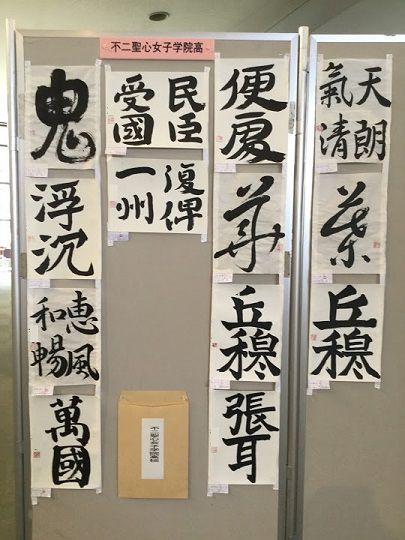 不二聖心女子学院高
天朗
氣清
丘穆
便
華
丘穆
張耳
民臣
受國
復俾
一州
鬼
浮沉
恵風
和暢
萬國
不二聖心女子学院高校